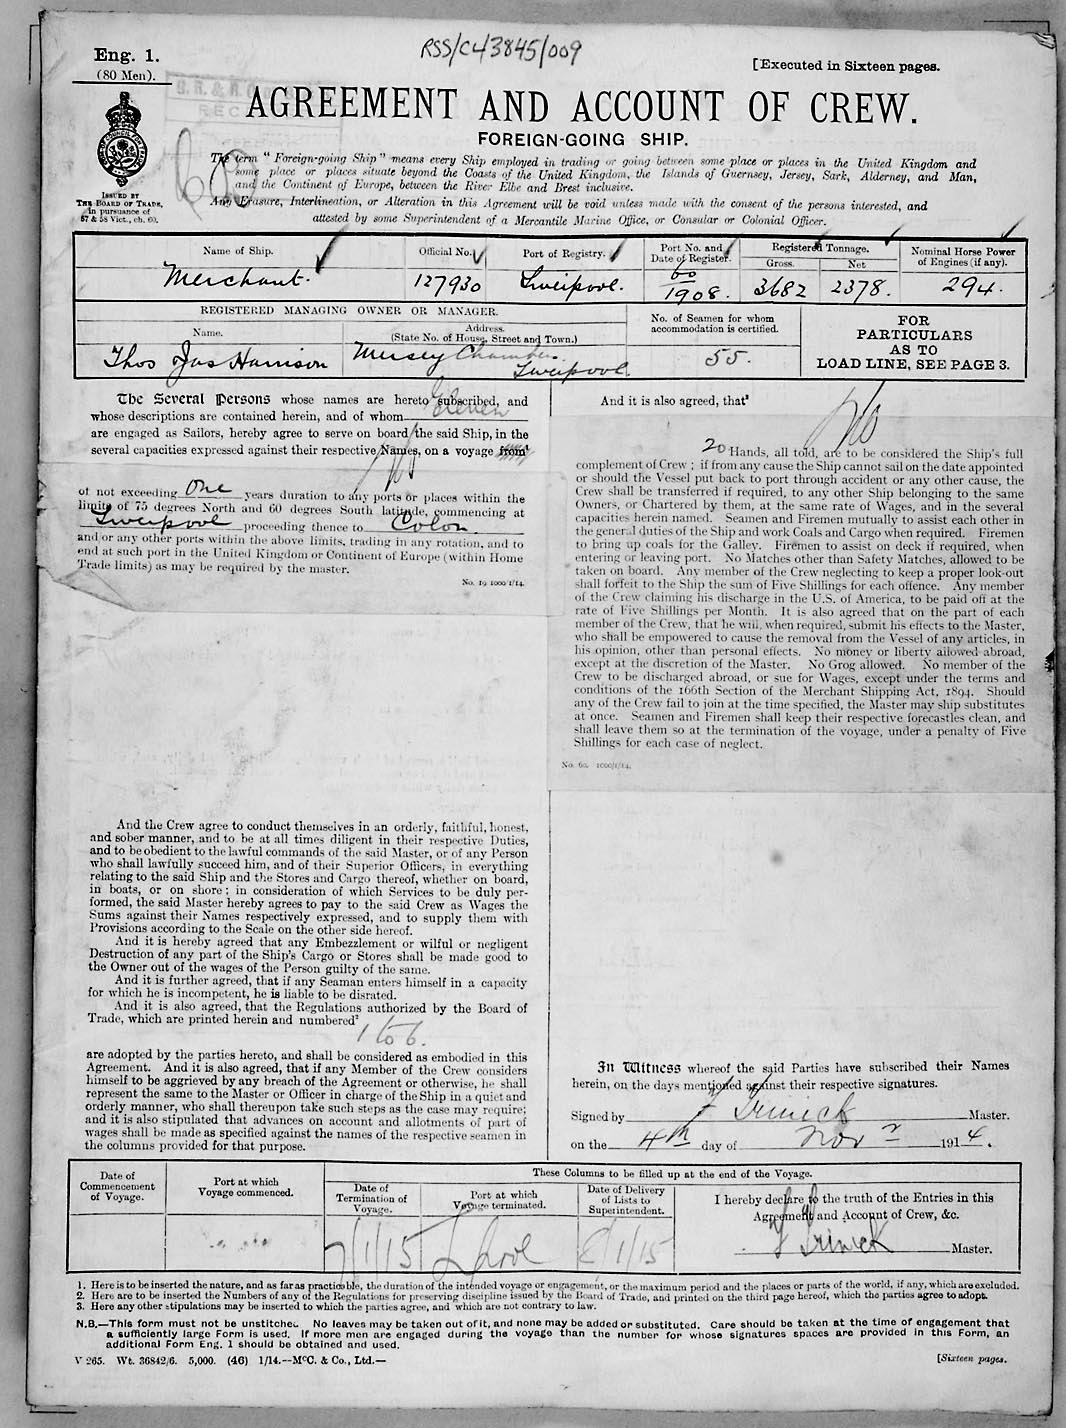 RSS/C43845/009
Eng. 1.
(80 Men).
[Executed in Sixteen pages.
AGREEMENT AND ACCOUNT OF CREW.
FOREIGN-GOING SHIP.
The term "Foreign-going Ship" means every Ship employed in trading or going between some place or places in the United Kingdom and
some place or places situate beyond the Coasts of the United Kingdom, the Islands of Guernsey, Jersey, Sark, Alderney, and Man,
and the Continent of Europe, between the River Elbe and Brest inclusive.
Any Erasure, Interlineation, or Alteration in this Agreement will be void unless made with the consent of the persons interested, and
attested by some Superintendent of a Mercantile Marine Office, or Consular or Colonial Officer.
ISSUED BY
THE BOARD OF TRADE,
in pursuance of
57 & 58 Vict., ch. 60.
Name of Ship.
Official No.
Port of Registry.
Port No. and
Date of Register.
Registered Tonnage.
Gross.
Net
Nominal Horse Power
of Engines (if any).
Merchant.
127930
Liverpool.
60
1908.
3682
2378.
294.
REGISTERED MANAGING OWNER OR MANAGER.
Name.
Address.
(State No. of House, Street and Town.)
No. of Seamen for whom
accommodation is certified.
FOR
PARTICULARS
AS TO
LOAD LINE, SEE PAGE 3.
Thos Jas Harrison
Mersey Chambers
Liverpool.
55.
The Several Persons whose names are hereto subscribed, and
whose descriptions are contained herein, and of whom Eleven
are engaged as Sailors, hereby agree to serve on board the said Ship, in the
several capacities expressed against their respective Names, on a voyage from¹
of not exceeding One years duration to any ports or places within the
limits of 75 degrees North and 60 degrees South latitude, commencing at
Liverpool proceeding thence to Colon
and/or any other ports within the above limits, trading in any rotation, and to
end at such port in the United Kingdom or Continent of Europe (within Home
Trade limits) as may be required by the master.
No. 19 1000 1/14.
And the Crew agree to conduct themselves in an orderly, faithful, honest,
and sober manner, and to be at all times diligent in their respective Duties,
and to be obedient to the lawful commands of the said Master, or of any Person
who shall lawfully succeed him, and of their Superior Officers, in everything
relating to the said Ship and the Stores and Cargo thereof, whether on board,
in boats, or on shore; in consideration of which Services to be duly per-
formed, the said Master hereby agrees to pay to the said Crew as Wages the
Sums against their Names respectively expressed, and to supply them with
Provisions according to the Scale on the other side hereof.
And it is hereby agreed that any Embezzlement or wilful or negligent
Destruction of any part of the Ship's Cargo or Stores shall be made good to
the Owner out of the wages of the Person guilty of the same.
And it is further agreed, that if any Seaman enters himself in a capacity
for which he is incompetent, he is liable to be disrated.
And it is also agreed, that the Regulations authorized by the Board of
Trade, which are printed herein and numbered²
1 to 6.
are adopted by the parties hereto, and shall be considered as embodied in this
Agreement. And it is also agreed, that if any Member of the Crew considers
himself to be aggrieved by any breach of the Agreement or otherwise, he shall
represent the same to the Master or Officer in charge of the Ship in a quiet and
orderly manner, who shall thereupon take such steps as the case may require;
and it is also stipulated that advances on account and allotments of part of
wages shall be made as specified against the names of the respective seamen in
the columns provided for that purpose.
And it is also agreed, that³
20 Hands, all told, are to be considered the Ship's full
complement of Crew; if from any cause the Ship cannot sail on the date appointed
or should the Vessel put back to port through accident or any other cause, the
Crew shall be transferred if required, to any other Ship belonging to the same
Owners, or Chartered by them, at the same rate of Wages, and in the several
capacities herein named. Seamen and Firemen mutually to assist each other in
the general duties of the Ship and work Coals and Cargo when required. Firemen
to bring up coals for the Galley. Firemen to assist on deck if required, when
entering or leaving port. No Matches other than Safety Matches, allowed to be
taken on board. Any member of the Crew neglecting to keep a proper look-out
shall forfeit to the Ship the sum of Five Shillings for each offence. Any member
of the Crew claiming his discharge in the U.S. of America, to be paid off at the
rate of Five Shillings per Month. It is also agreed that on the part of each
member of the Crew, that he will, when required, submit his effects to the Master,
who shall be empowered to cause the removal from the Vessel of any articles, in
his opinion, other than personal effects. No money or liberty allowed abroad,
except at the discretion of the Master. No Grog allowed. No member of the
Crew to be discharged abroad, or sue for Wages, except under the terms and
conditions of the 166th Section of the Merchant Shipping Act, 1894. Should
any of the Crew fail to join at the time specified, the Master may ship substitutes
at once. Seamen and Firemen shall keep their respective forecastles clean, and
shall leave them so at the termination of the voyage, under a penalty of Five
Shillings for each case of neglect.
No. 60. 1000/1/14.
In Witness whereof the said Parties have subscribed their Names
herein, on the days mentioned against their respective signatures.
Signed by F Trinick Master.
on the 4th day of Novr 1914.
Date of
Commencement
of Voyage.
Port at which
Voyage commenced.
These Columns to be filled up at the end of the Voyage.
Date of
Termination of
Voyage.
Port at which
Voyage terminated.
Date of Delivery
of Lists to
Superintendent.
I hereby declare to the truth of the Entries in this
Agreement and Account of Crew, &c.
7/1/15
L'pool
8/1/15
F Trinick Master.
1. Here is to be inserted the nature, and as far as practicable, the duration of the intended voyage or engagement, or the maximum period and the places or parts of the world, if any, which are excluded.
2. Here are to be inserted the Numbers of any of the Regulations for preserving discipline issued by the Board of Trade, and printed on the third page hereof, which the parties agree to adopt.
3. Here any other stipulations may be inserted to which the parties agree, and which are not contrary to law.
N.B.—This form must not be unstitched. No leaves may be taken out of it, and none may be added or substituted. Care should be taken at the time of engagement that
a sufficiently large Form is used. If more men are engaged during the voyage than the number for whose signatures spaces are provided in this Form, an
additional Form Eng. 1 should be obtained and used.
V 265. Wt. 36842/6. 5,000. (46) 1/14.--McC. & Co., Ltd.—
[Sixteen pages.